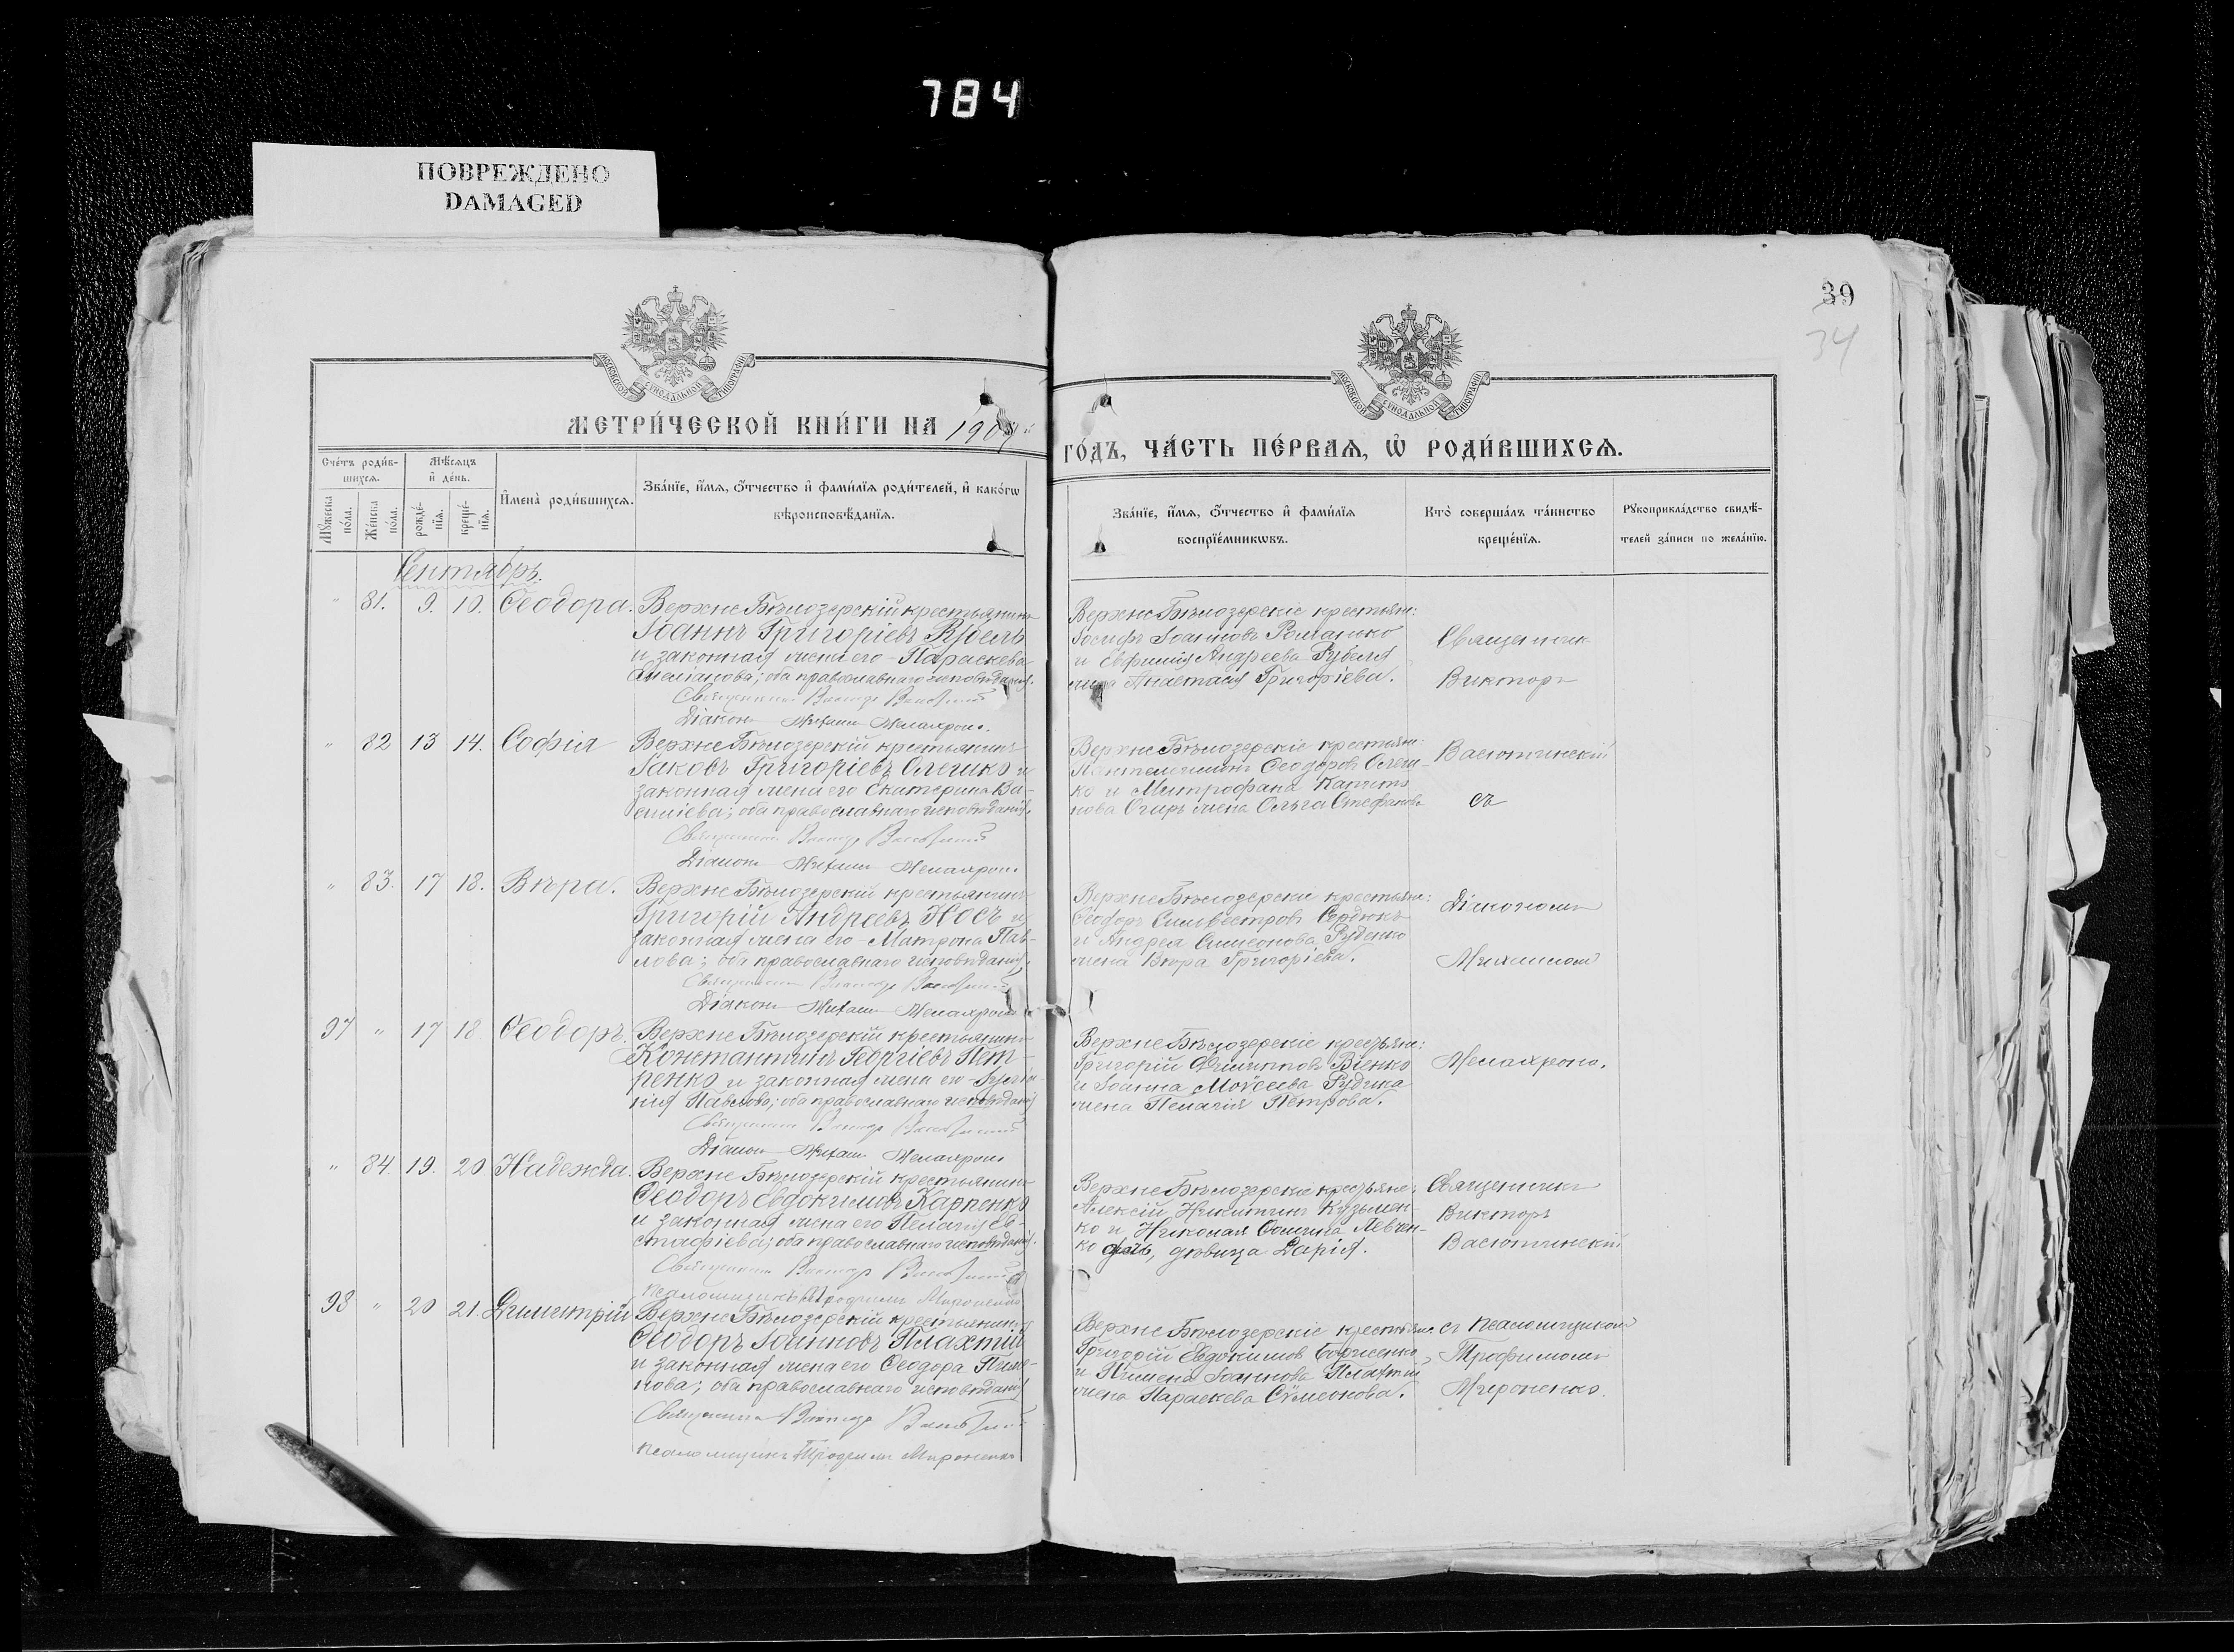 784
ПОВРЕЖДЕНО
DAMAGED
39
34
МОСКОВСКОЙ СѴНОДАЛЬНОЙ ТИПОГРАФІИ
МОСКОВСКОЙ СѴНОДАЛЬНОЙ ТИПОГРАФІИ
МЕТРИ́ЧЕСКОЙ КНИ́ГИ НА 190
ГО́ДЪ, ЧА́СТЬ ПЕ́РВАЯ, Ѡ҆ РОДИ́ВШИХСЯ.
Сче́тъ роди́в-
шихся.
Мѣ́сяцъ
и҆ де́нь.
Мꙋ́жеска по́ла.
Же́нска по́ла.
рожде́-
нїя.
креще́-
нїя.
И҆мена̀ роди́вшихся.
Зва́нїе, и҆́мя, ѻ҆́тчество и҆ фами́лїя роди́телей, и҆ како́гѡ
вѣроисповѣ́данїя.
Зва́нїе, и҆́мя, ѻ҆́тчество и҆ фами́лїя
воспрїе́мникѡвъ.
Кто̀ соверша́лъ та́инство
креще́нїя.
Рꙋкоприкла́дство свидѣ́-
телей за́писи по жела́нїю.
Сентябрь.
" 81. 9. 10. Ѳеодора. Верхне Бѣлозерскій крестьянинъ
Іоаннъ Григоріевъ Рубель
и законная жена его Параскева
оба православнаго исповѣданія.
Священникъ Викторъ
Діаконъ Михаилъ
Верхне Бѣлозерскіе крестьяне:
Іосифъ Іоанновъ Романько
и Андреева Рубеля
жена Анастасія Григоріева.
Священник
Викторъ
" 82 13 14. Софія Верхне Бѣлозерскій крестьянинъ
Іаковъ Григоріевъ Олешко и
законная жена его Екатерина Ва-
силіева; оба православнаго исповѣданія.
Священникъ Викторъ
Діаконъ Михаилъ
Верхне Бѣлозерскіе крестьяне:
Пантелеимонъ Ѳеодоровъ Олеш-
ко и Митрофана Капито-
нова Огирь жена Ольга Стефанова
Васютинскій
съ
" 83. 17 18. Вѣра. Верхне Бѣлозерскій крестьянинъ
Григорій Андреевъ Носъ и
законная жена его Матрона Пав-
лова; оба православнаго исповѣданія.
Священникъ Викторъ
Діаконъ Михаилъ
Верхне Бѣлозерскіе крестьяне:
Ѳеодоръ Сильвестровъ Сердюкъ
и Андрея Симеонова Руденко
жена Вѣра Григоріева.
Діакономъ
Михаиломъ
97 " 17 18 Ѳеодоръ. Верхне Бѣлозерскій крестьянинъ
Константинъ Георгіевъ Пет-
ренко и законная жена его Іуліа-
нія Павлова; оба православнаго исповѣданія
Священникъ Викторъ
Діаконъ Михаилъ
Верхне Бѣлозерскіе крестьяне:
Григорій Филипповъ Віенко
и Іоанна Моѵсеева Рудика
жена Пелагія Петрова.
" 84. 19. 20 Надежда. Верхне Бѣлозерскій крестьянинъ
Ѳеодоръ Евдокимовъ Карпенко
и законная жена его Пелагія Ев-
стафіева; оба православнаго исповѣданія.
Священникъ Викторъ
Псаломщикъ Трофимъ Мироненко
Верхне Бѣлозерскіе крестьяне:
Алексій Никитинъ Кузьмен-
ко и Николая Левчен-
ко дочь, дѣвица Дарія.
Священникъ
Викторъ
Васютинскій
98 " 20 21. Димитрій Верхне Бѣлозерскій крестьянинъ
Ѳеодоръ Іоанновъ Плахтій
и законная жена его Ѳеодора Пиме-
нова; оба православнаго исповѣданія
Священникъ Викторъ
Псаломщикъ Трофимъ Мироненко
Верхне Бѣлозерскіе крестьяне:
Григорій Евдокимовъ Борисенко
и Пимена Іоаннова Плахтій
жена Параскева Сѵмеонова.
съ псаломщикомъ
Трофимомъ
Мироненко.